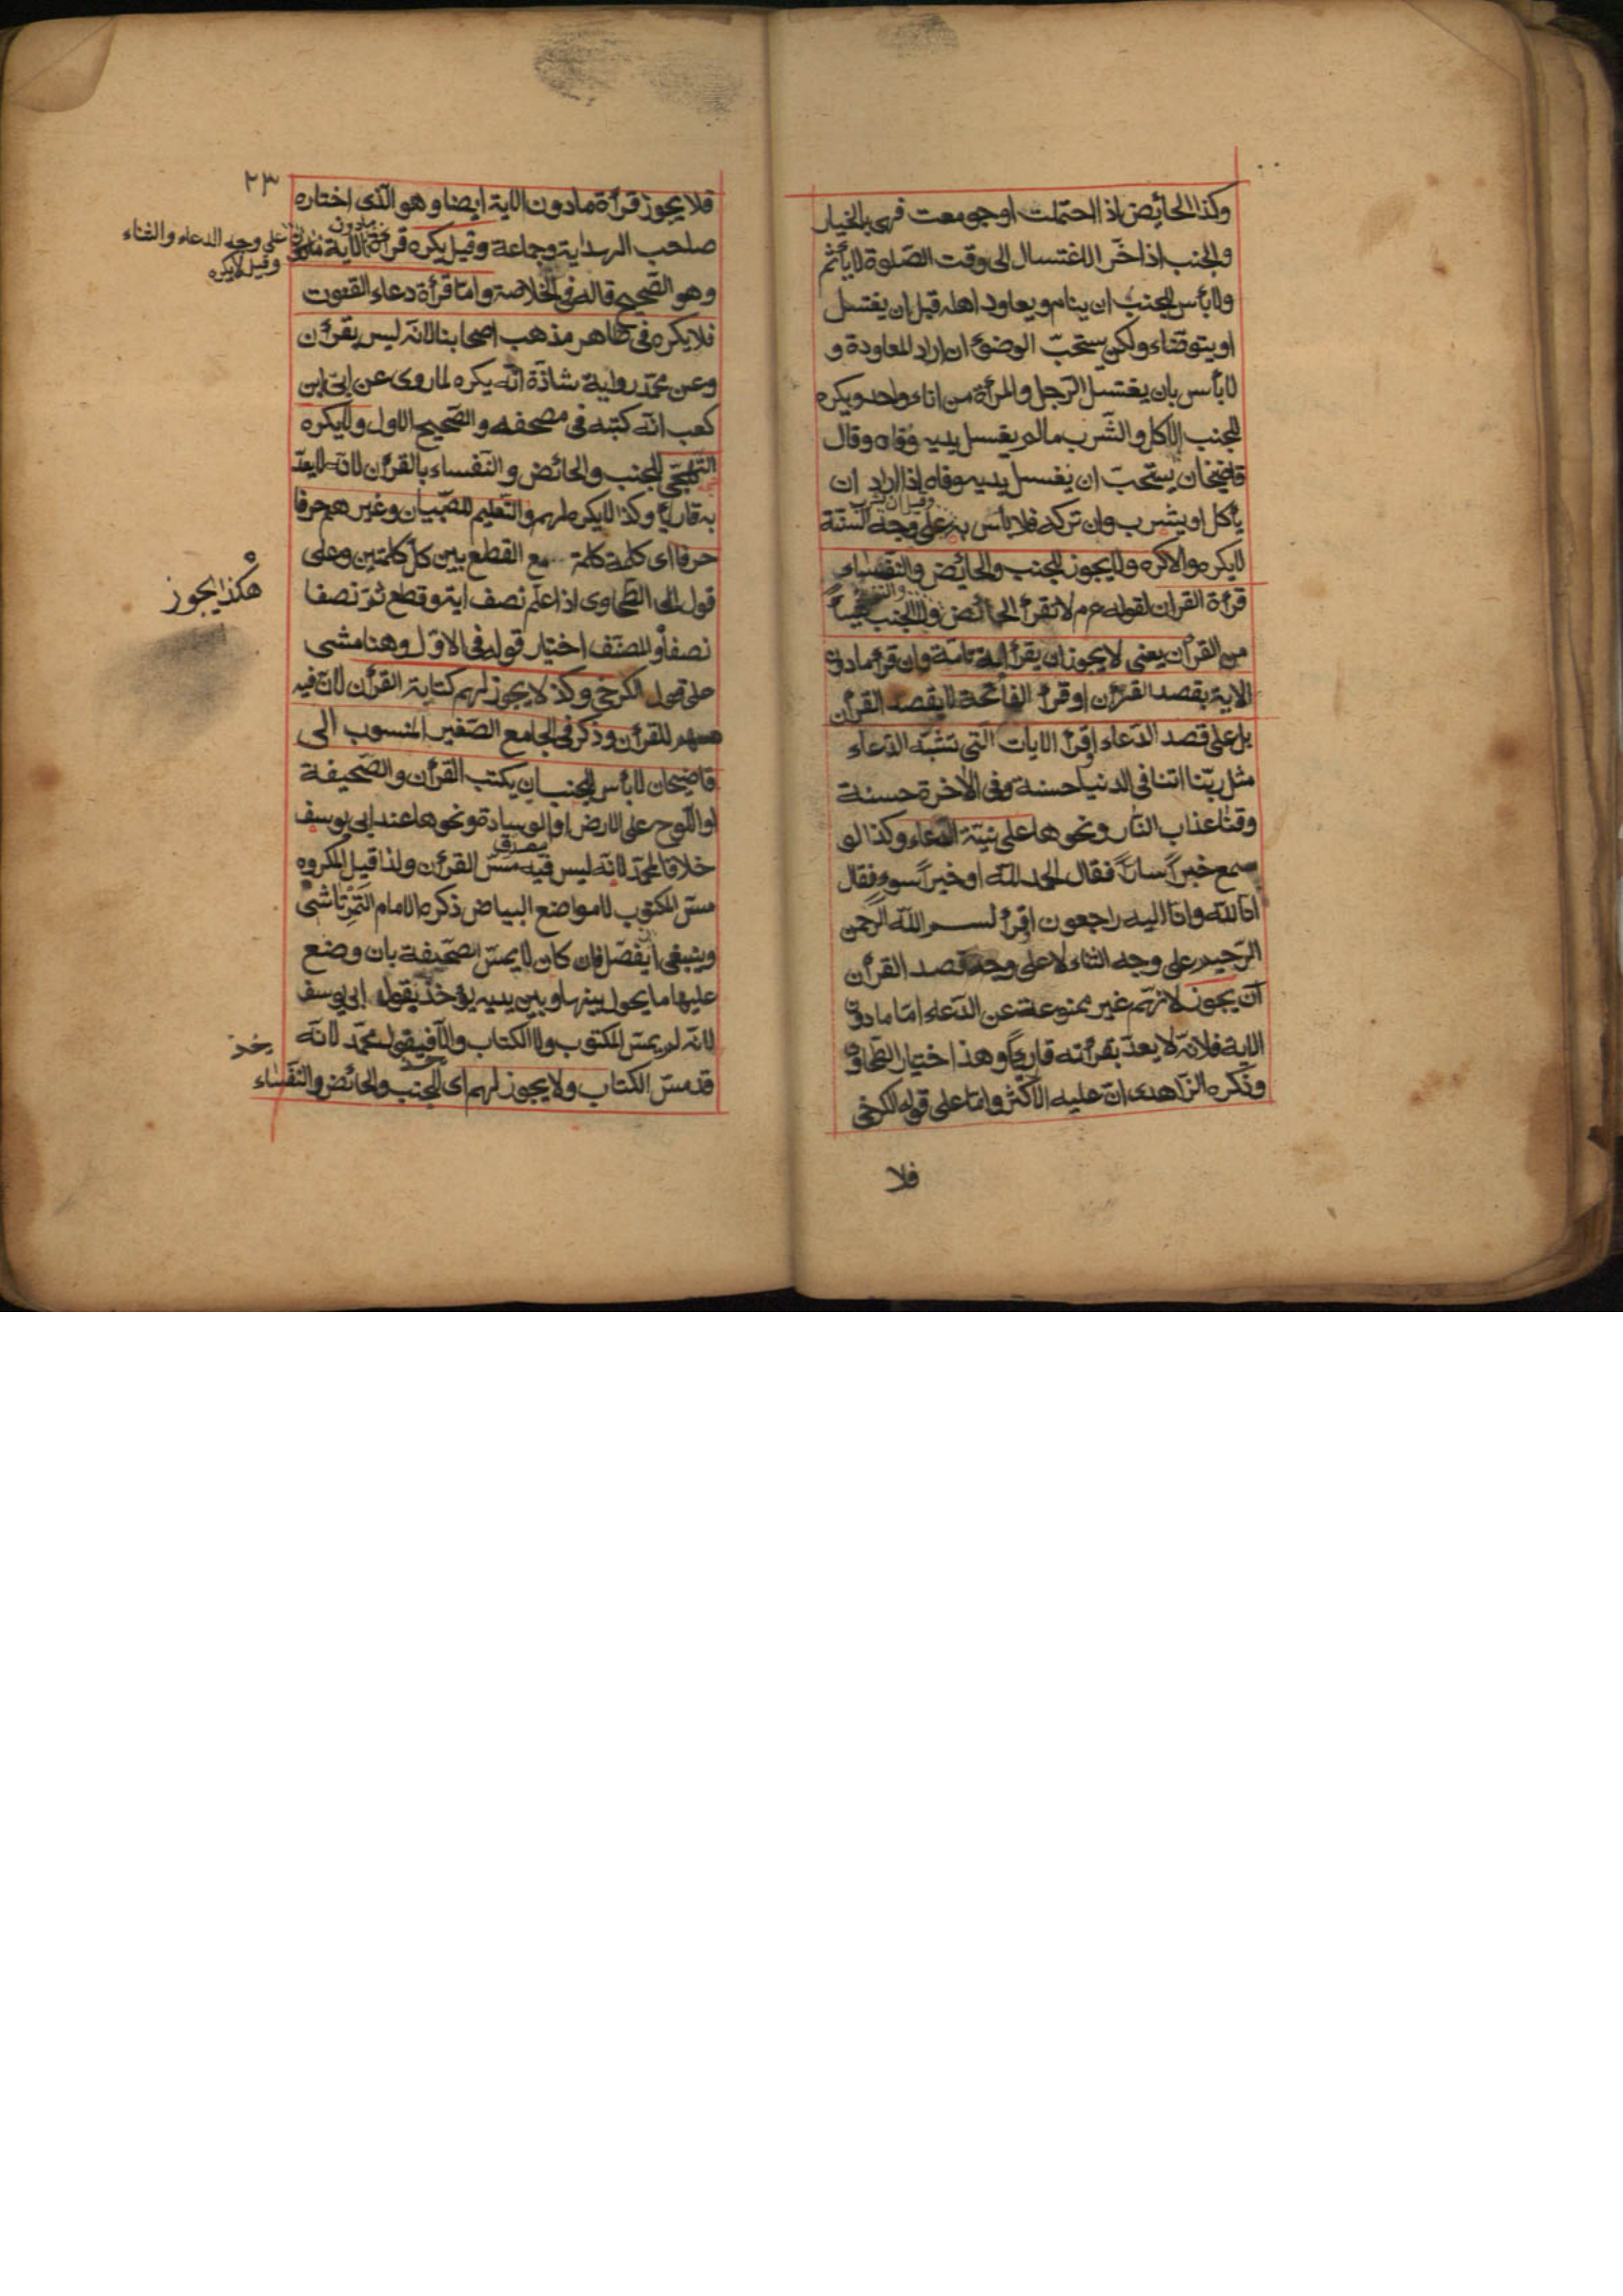 وكذا الحائض اذا احتملت او جومعت فهى بالخيار
والجنب اذا اخّر الاغتسال الى وقت الصّلوة لا يأثم
ولا بأس للجنب ان ينام ويعاود اهله قبل ان يغتسل
او يتوضّاء ولكن يستحبّ الوضوئ ان اراد المعاودة و
لا بأس بان يغتسل الرّجل والمرأة من اناء واحد ويكره
للجنب الاكل والشّرب مالم يغسل يديه وفاه وقال
قاضيخان يستحبّ ان يغسل يديه وفاه اذا اراد ان
يأكل او يشرب وان تركه فلا بأس به على وجه السّنّة
وقيل ان شرب
لا يكره والا كره ولا يجوز للجنب والحائض والنّفساء
قرأة القران لقوله عم لا تقرأ الحائض ولا الجنب شيئاً
من القرأن يعنى لا يجوز ان يقرأ اية تامّة وان قرأ مادون
الاية بقصد القرأن او قرأ الفاتحة لا بقصد القرأن
بل على قصد الدّعاء او قرأ الايات الّتى تشبه الدّعاء
مثل ربّنا اتنا فى الدنيا حسنة وفى الاخرة حسنة
وقنا عذاب النّار ونحوها على نيّة الدّعاء وكذا لو
سمع خبراً سارّاً فقال الحمد للّه او خبراً سوء فقال
انّا للّه وانّا اليه راجعون او قرأ بسم اللّه الرّحمن
الرّحيم على وجه الثناء لا على وجه قصد القرأن
ان يجوز لانّهم غير ممنوعة عن الدّعاء امّا مادون
الاية فلانّه لا يعدّ بقرأته قارئاً وهذا اختيار الطّحاوى
وذكره الزّاهدى انّ عليه الاكثر وامّا على قول الكرخى
فلا
٢٣
فلا يجوز قرأة مادون الاية ايضا وهو الّذى اختاره
صاحب الهداية وجماعة وقيل يكره قرأة مادون الاية
على وجه الدعاء والثناء
وقيل لا يكره
وهو الصّحيح قاله فى الخلاصة وامّا قرأة دعاء القنوت
فلا يكره فى ظاهر مذهب اصحابنا لانّه ليس بقرأن
وعن محمّد رواية شاذّة انّه يكره لما روى عن ابىّ ابن
كعب انّه كتبه فى مصحفه والصّحيح الاول ولا يكره
التّهجّى للجنب والحائض والنّفساء بالقرأن لانّه لا يعدّ
به قارئاً وكذا لا يكره لهم التّعليم للصّبيان وغيرهم حرفا
حرفا اى كلمة كلمة مع القطع بين كلّ كلمتين وعلى
قول الطّحاوى اذا علّم نصف اية وقطع ثمّ نصفا
هكذا يجوز
نصفاً والمصنّف اختيار قوله فى الاوّل وهنا مشى
على قول الكرخى وكذ لا يجوز لهم كتابة القرأن لانّ فيه
مسهم للقرأن وذكر فى الجامع الصّغير المنسوب الى
قاضيخان لا بأس للجنب ان يكتب القرأن والصّحيفة
او اللّوح على الارض او الوسادة ونحوها عند ابى يوسف
خلافا لمحمّد لانّه ليس فيه مسّ القرأن ولذا قيل المكروه
مسّ المكتوب لا مواضع البياض ذكره الامام التّمرتاشى
وينبغى ان يفصّل فان كان لا يمسّ الصّحيفة بان وضع
عليها ما يحول بينها وبين يديه يؤخذ بقول ابى يوسف
لانّه لم يمسّ المكتوب ولا الكتاب والّا فبقول محمّد لانّه
يؤخذ
قد مسّ الكتاب ولا يجوز لهم اى للجنب والحائض والنّفساء